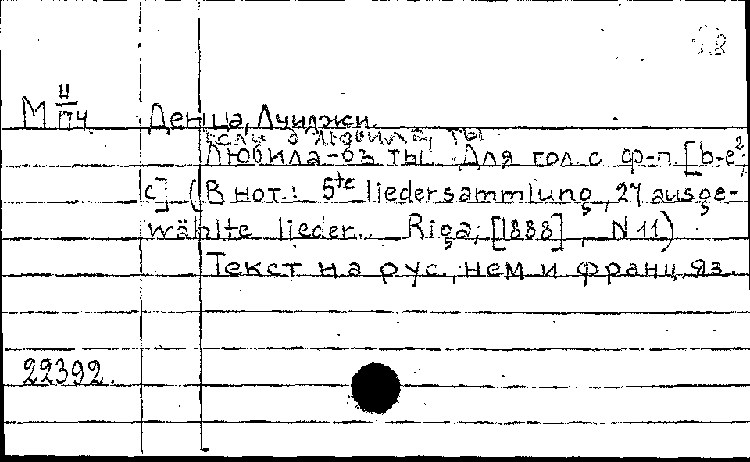 М II/174 Денца, Луиджи.
Если б любила, ты
Любила-бъ ты. Для гол. с ф-п. [b-e²,
c] (В нот.: 5te liedersammlung, 27 ausge-
wählte lieder. Riga, [1888], N 11)
Текст на рус., нем и франц. яз.
22392.